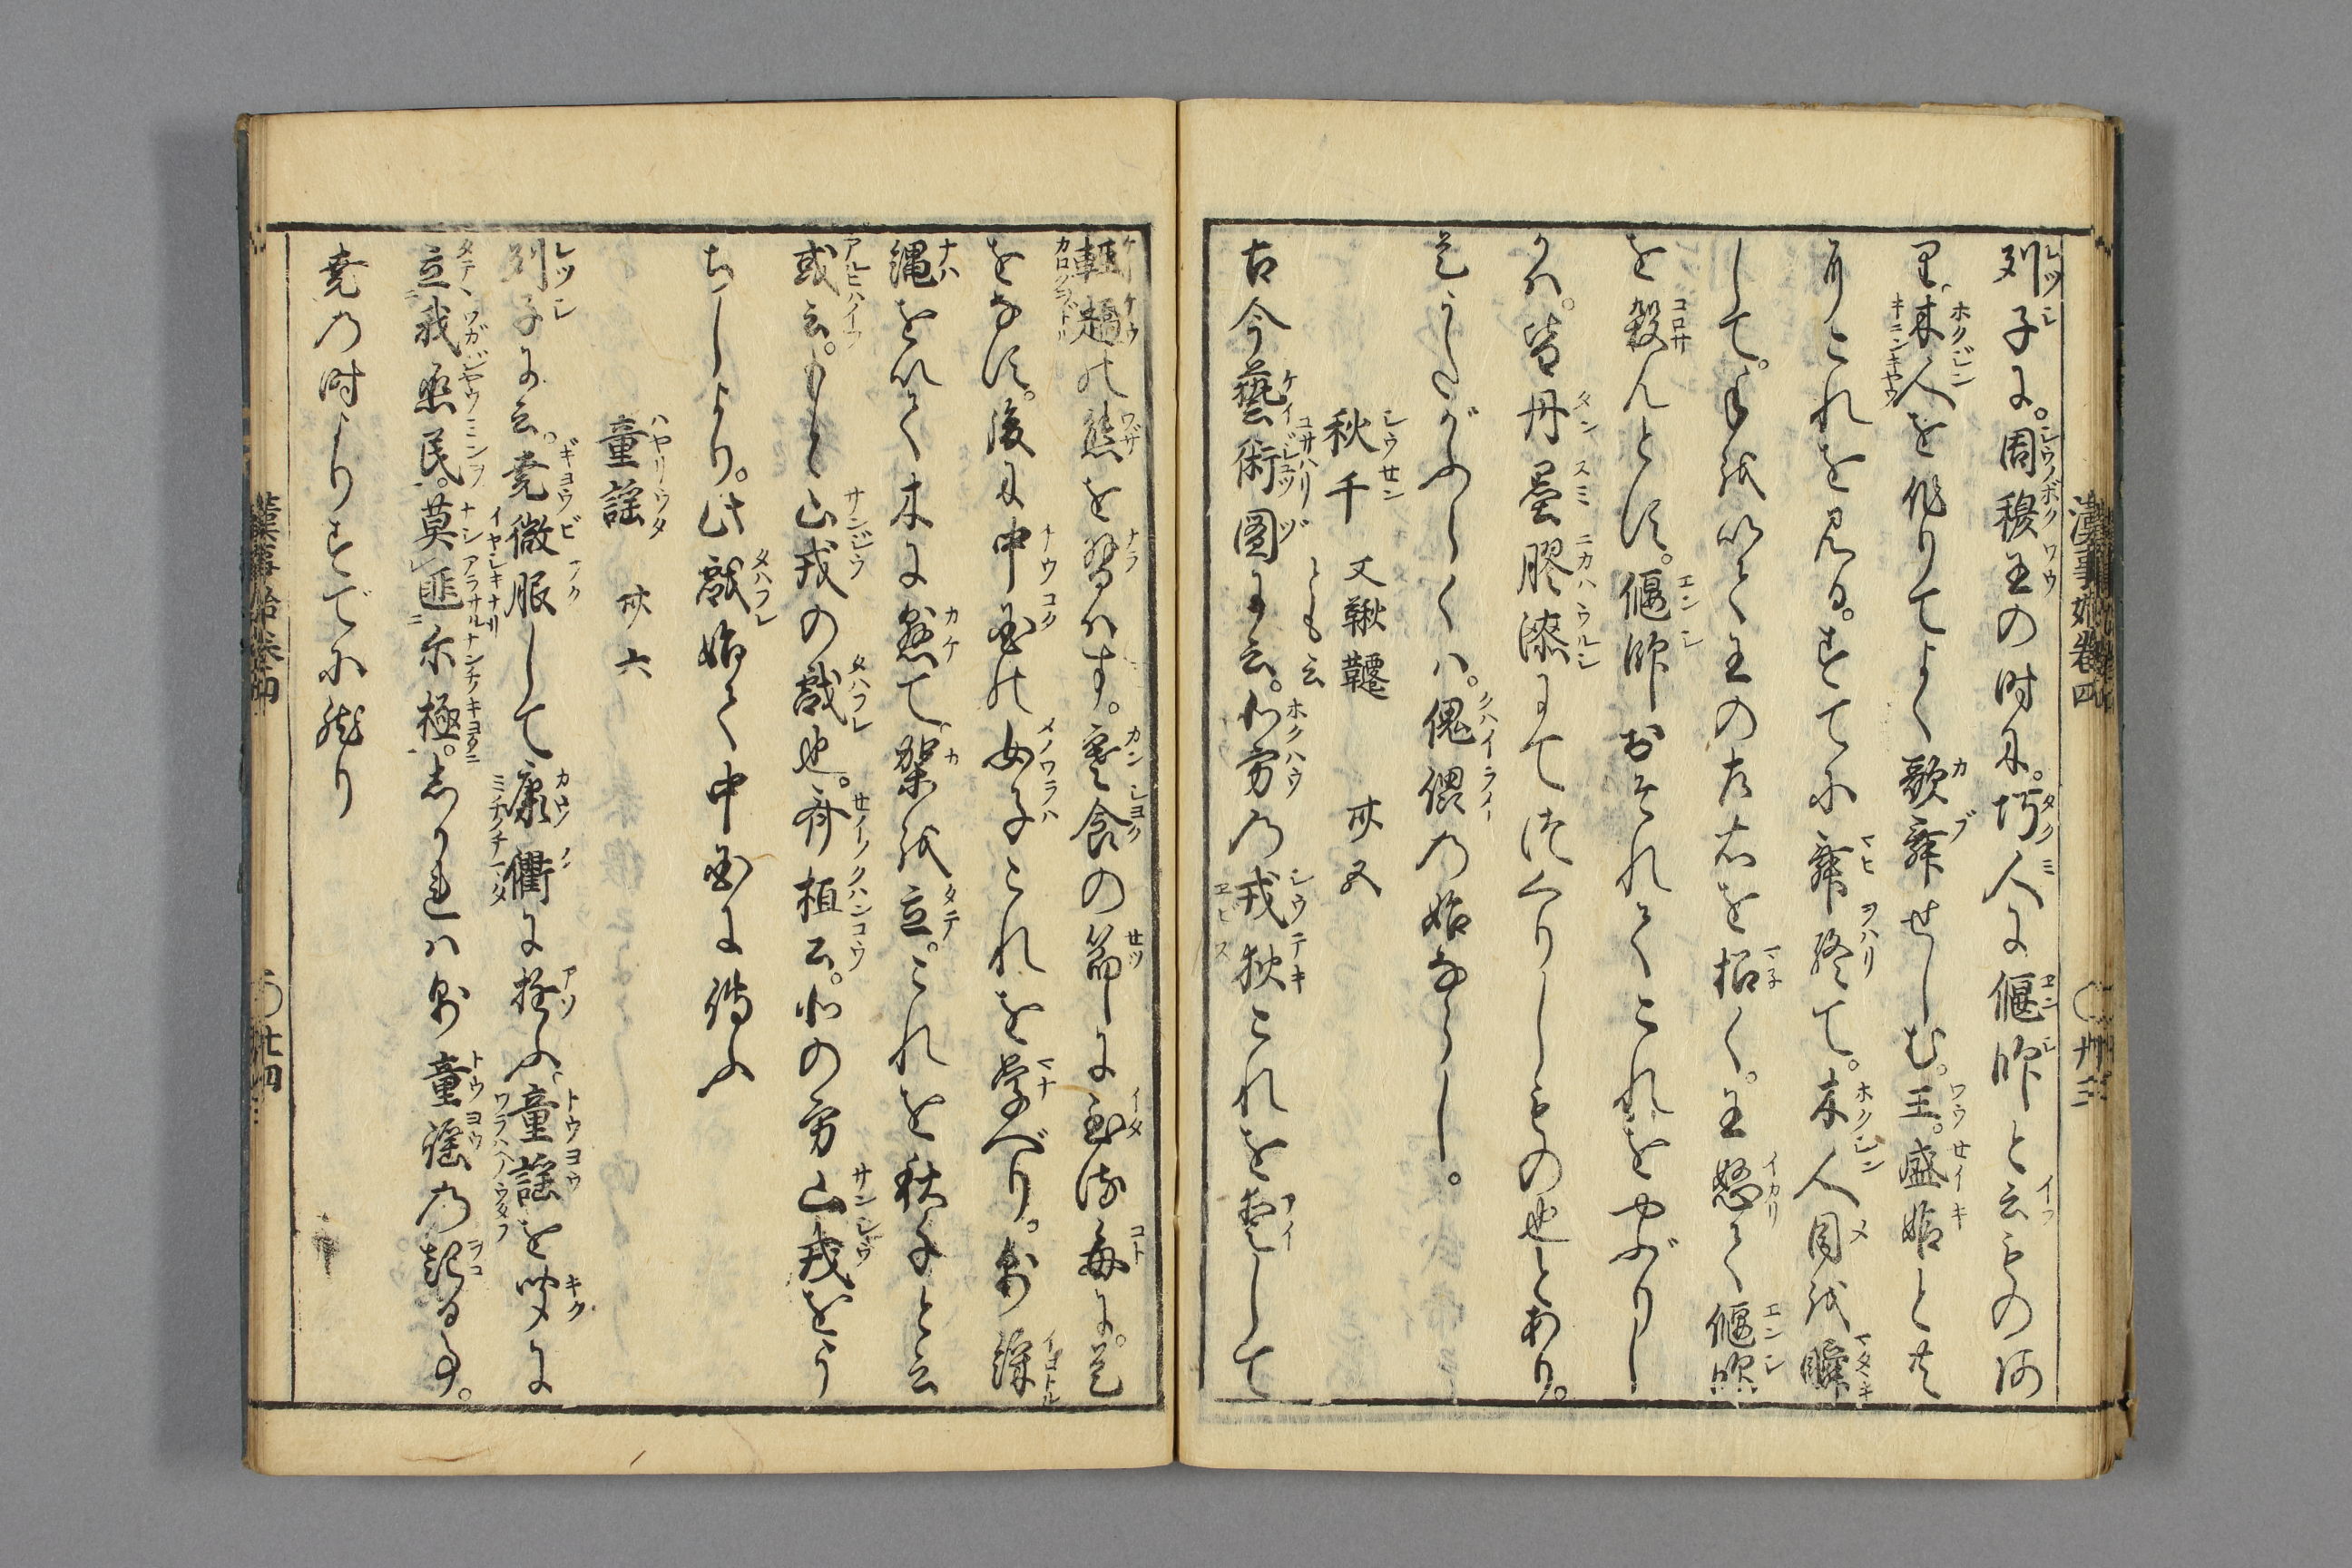 漢事始卷四 〇卅三
列子に。周穆王の時に。巧人に偃師と云もの有
り。木人を作りてよく歌舞せしむ。王。盛姫と共
に
これを見る。すでに舞終て。木人目を瞬
して。手を以て王の左右を招く。王怒て偃師
を殺んとす。偃師おそれてこれをやぶりし
かば。皆丹墨膠漆にてつくりしもの也とあり。
是うたがふらくハ。傀儡の始ならし。
秋千 又鞦韆とも云 卅五
古今藝術圖に云。北方の戎狄これを愛して
軽趫の態を習はす。寒食の節に至る毎に。是
をなす。後に中国の女子これを学べり。乃綵
縄を以て木に懸て架を立。これを秋千と云
或云。もと山戎の戯也。斉桓公。北の方山戎をう
ちしより。此戯始て中国に傳ふ
童謡 卅六
列子に云。堯微服して康衢に遊ふ童謡を聞に
立我烝民。莫匪尓極。しかれハ則童謡の起る事。
堯の時よりすでに然り
漢事始卷四 〇卅四